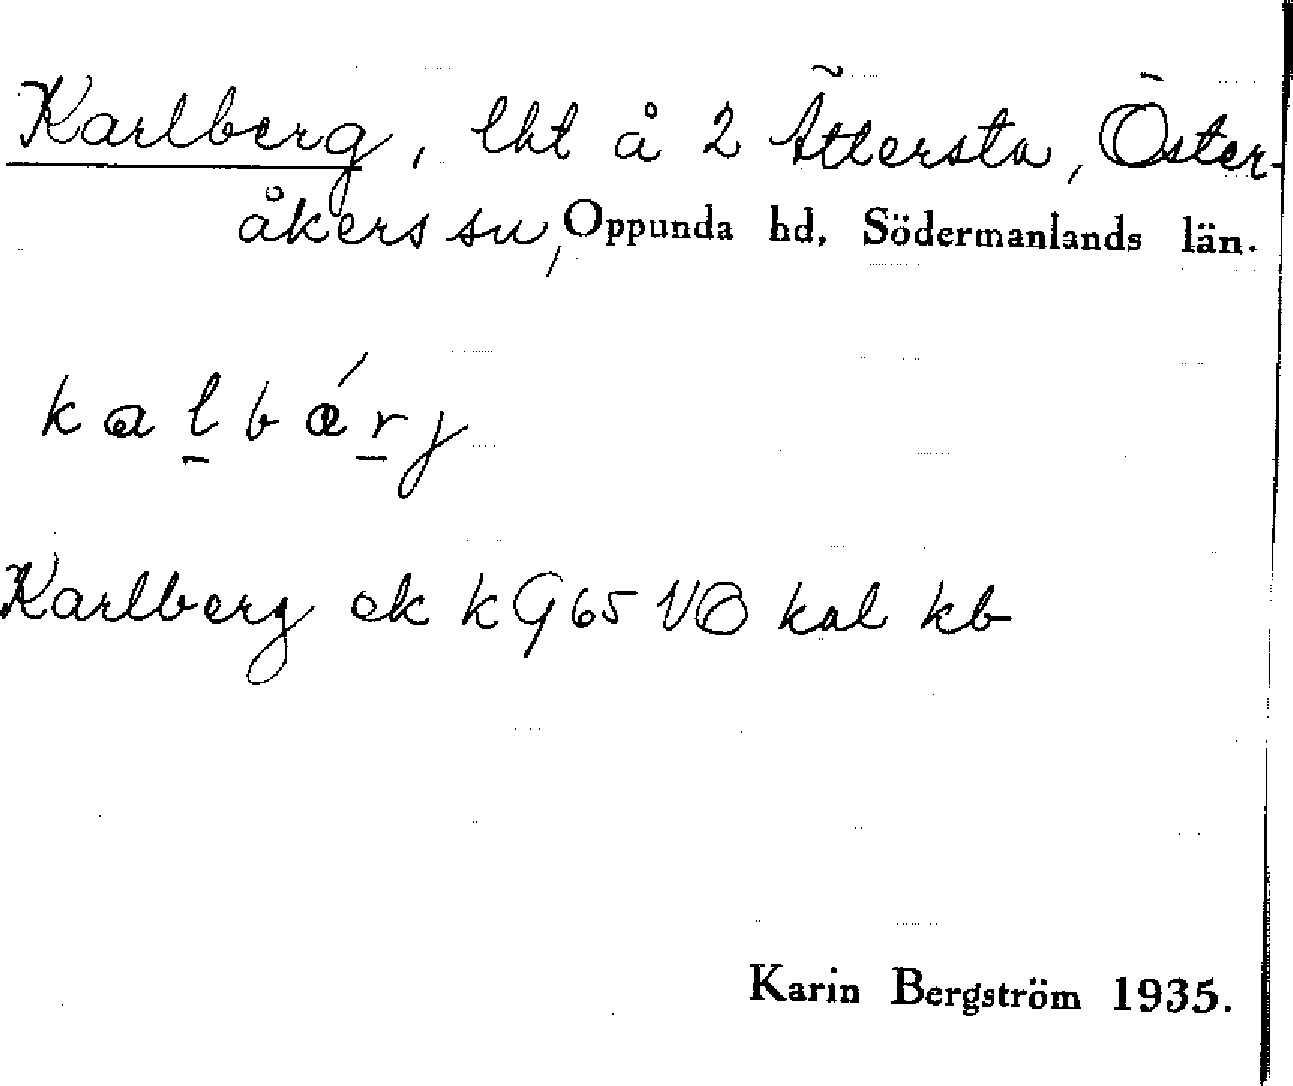 Karlberg, lht å 2 Ättersta, Öster-
åkers sn, Oppunda hd, Södermanlands län.
kalbǽrj
Karlberg ek k G 65 VÖ kal kb
Karin Bergström 1935.